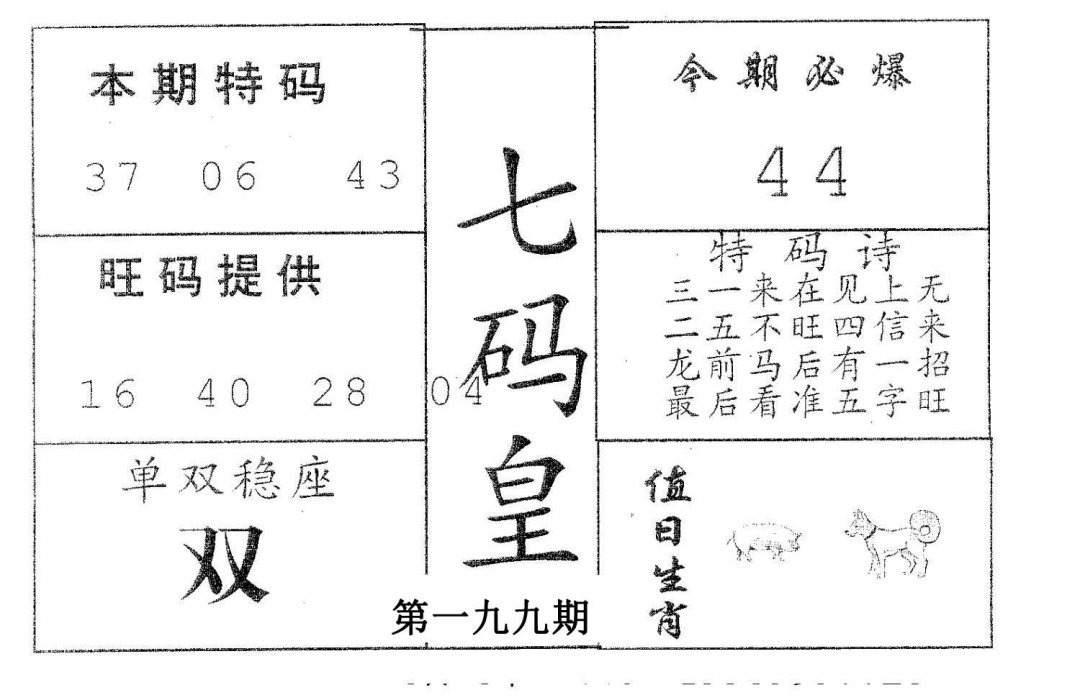 本期特码
37 06 43
旺码提供
16 40 28 04
单双稳座
双
七码皇
第一九九期
今期必爆
44
特码诗
三一来在见上无
二五不旺四信来
龙前马后有一招
最后看准五字旺
值日生肖